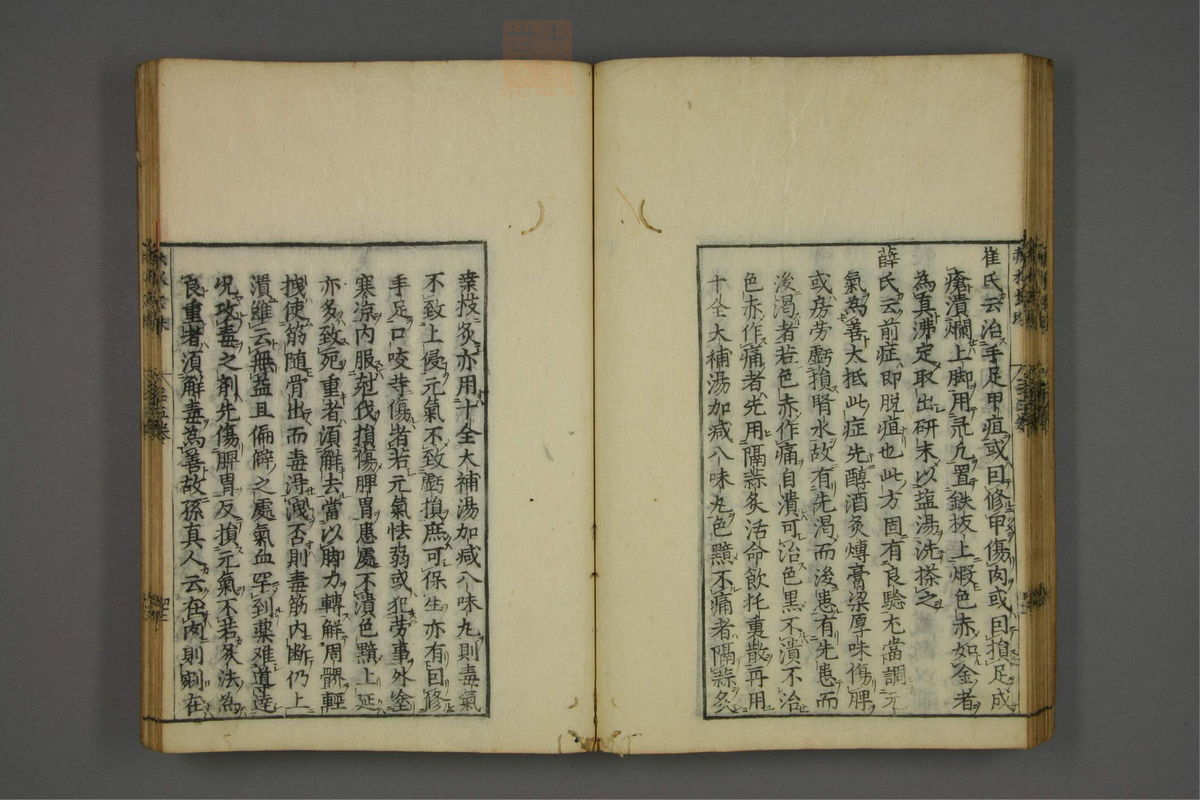 崔氏云治手足甲疽或因修甲傷肉或因損足成
瘡潰爛上脚用凡凡置鉄板上煅色赤如金者
為真沸定取出研末以塩湯洗搽之
薛氏云前症即脱疽也此方固有良驗尤當調元
氣為善大抵此症先醇酒炙煿膏梁厚味傷脾
或房劳虧損腎水故有先渴而後患有先患而
後渴者若色赤作痛自潰可治色黒不潰不治
色赤作痛者先用隔蒜灸活命飲托裏散再用
十全大補湯加减八味丸色黯不痛者隔蒜灸
桒枝灸亦用十全大補湯加减八味丸則毒氣
不致上侵元氣不致虧損庶可保生亦有因修
手足口咬等傷者若元氣怯弱或犯劳事外塗
寒凉内服尅伐損傷脾胃患處不潰色黯上延
亦多致死重者湏觧去當以脚力轉觧周髁輕
拽使筋随骨出而毒得洩否則毒筋内断仍上
潰雖云無益且偏僻之處氣血罕到藥难導達
况攻毒之剤先傷脾胃反損元氣不若灸法為
良重者湏觧毒為善故孫真人云在肉則割在